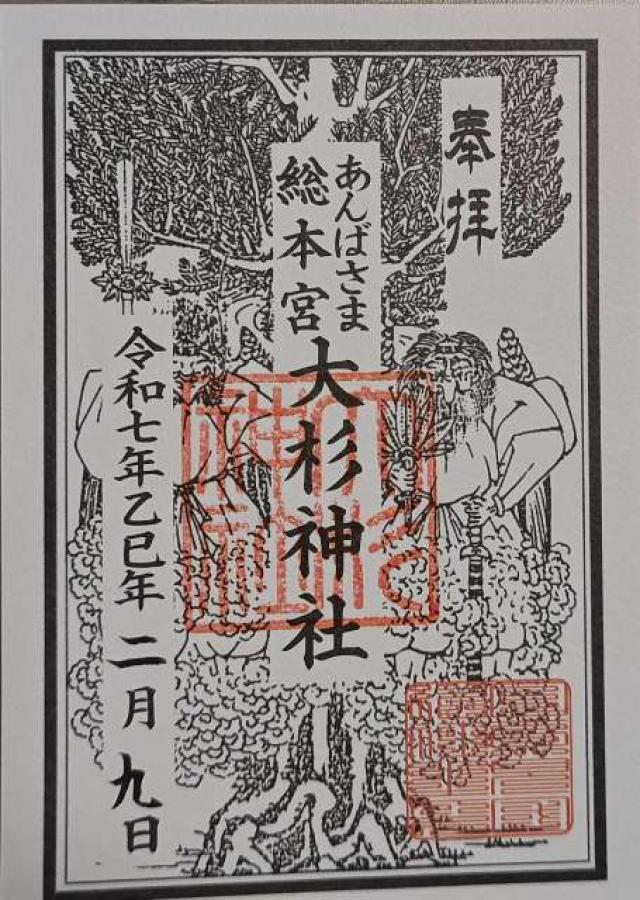 奉拝
あんばさま
総本宮
大杉神社
令和七年乙巳年二月九日